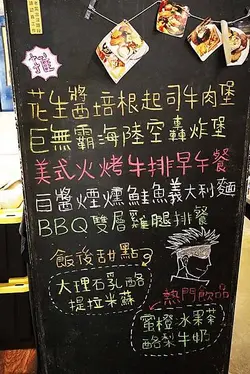 花生醬培根起司牛肉堡
巨無霸海陸空轟炸堡
美式火烤牛排早午餐
白醬煙燻鮭魚義大利麵
BBQ雙層雞腿排餐
飯後甜點
大理石乳酪
提拉米蘇
熱門飲品
蜜橙水果茶
酪梨牛奶